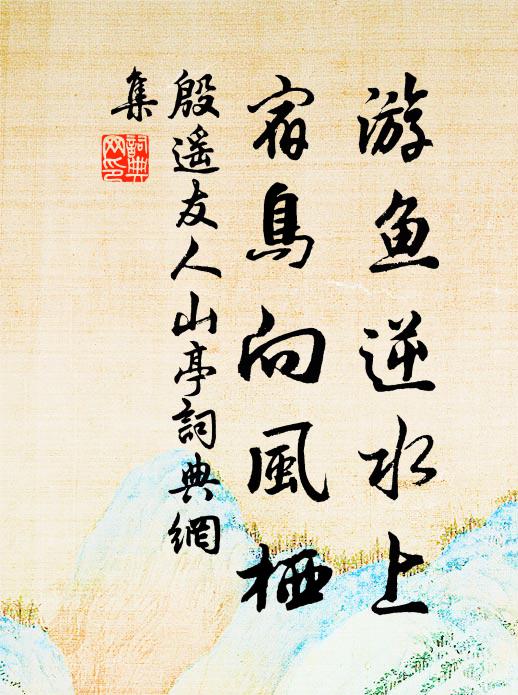 游鱼逆水上
宿鳥向風栖
殷遥友人山亭詞典網
集
詞典網印